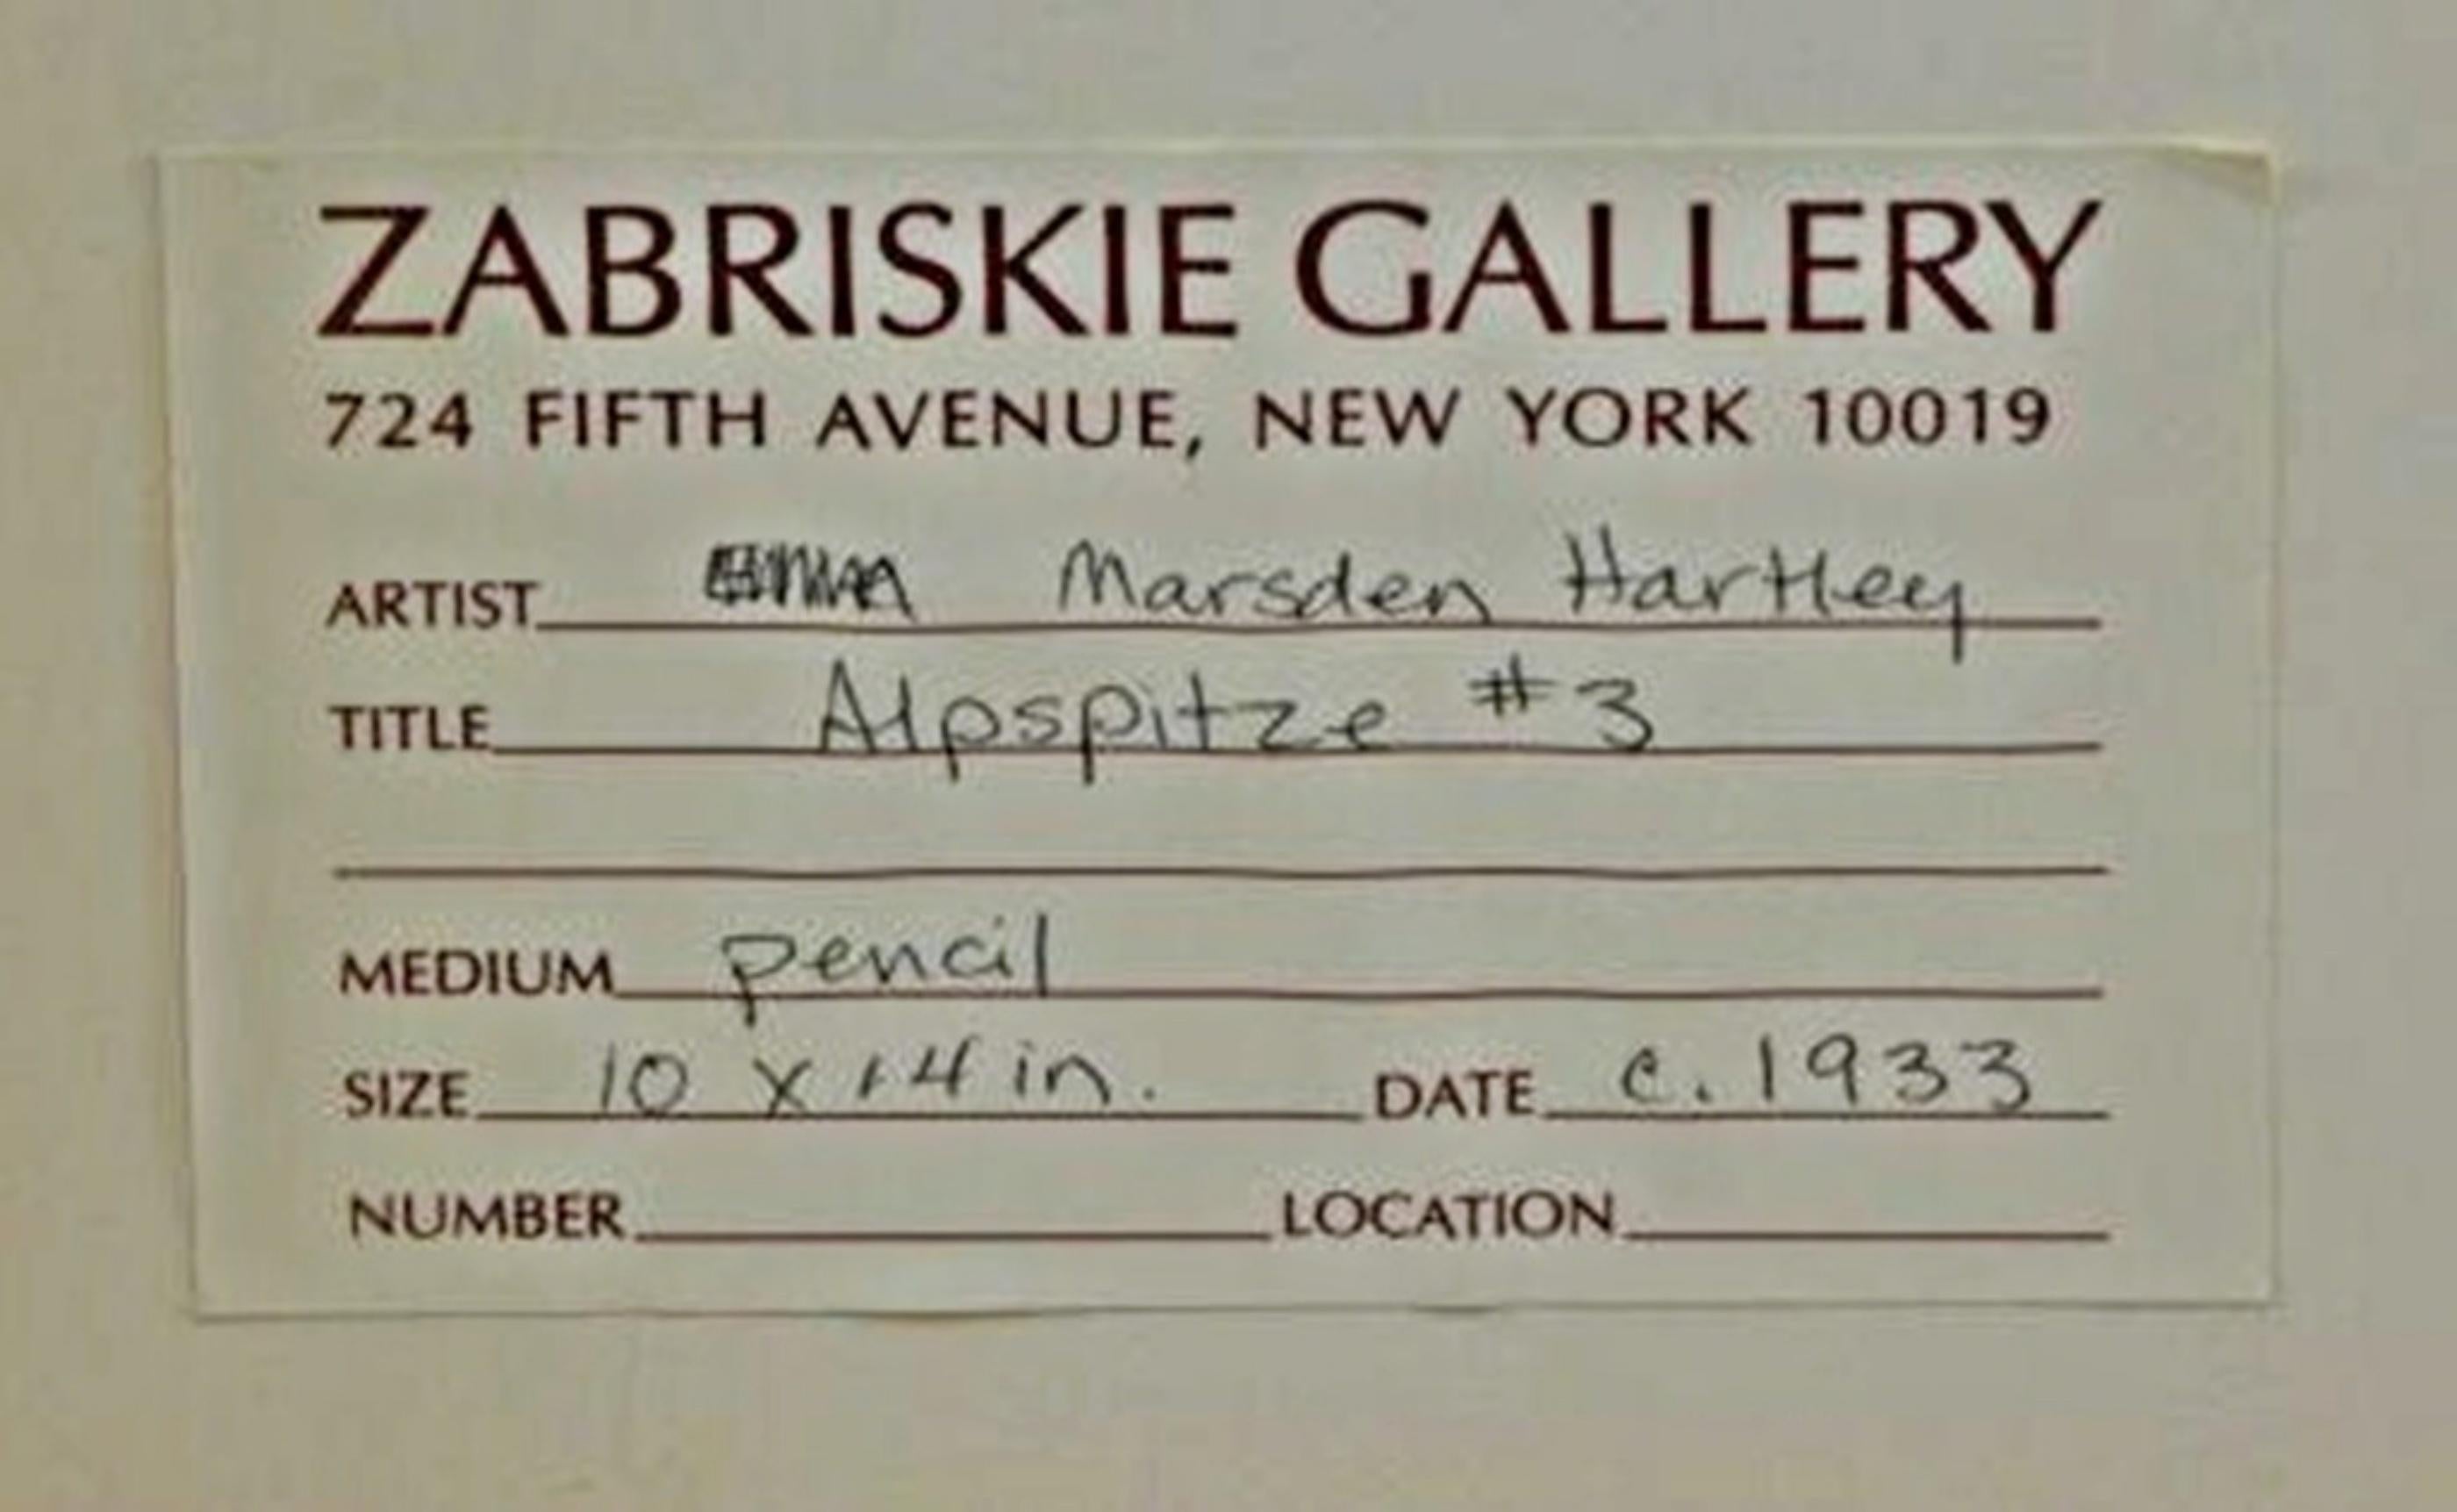 ZABRISKIE GALLERY
724 FIFTH AVENUE, NEW YORK 10019
ARTIST Marsden Hartley
TITLE Alpspitze #3
MEDIUM pencil
SIZE 10 x 14 in. DATE c. 1933
NUMBER LOCATION